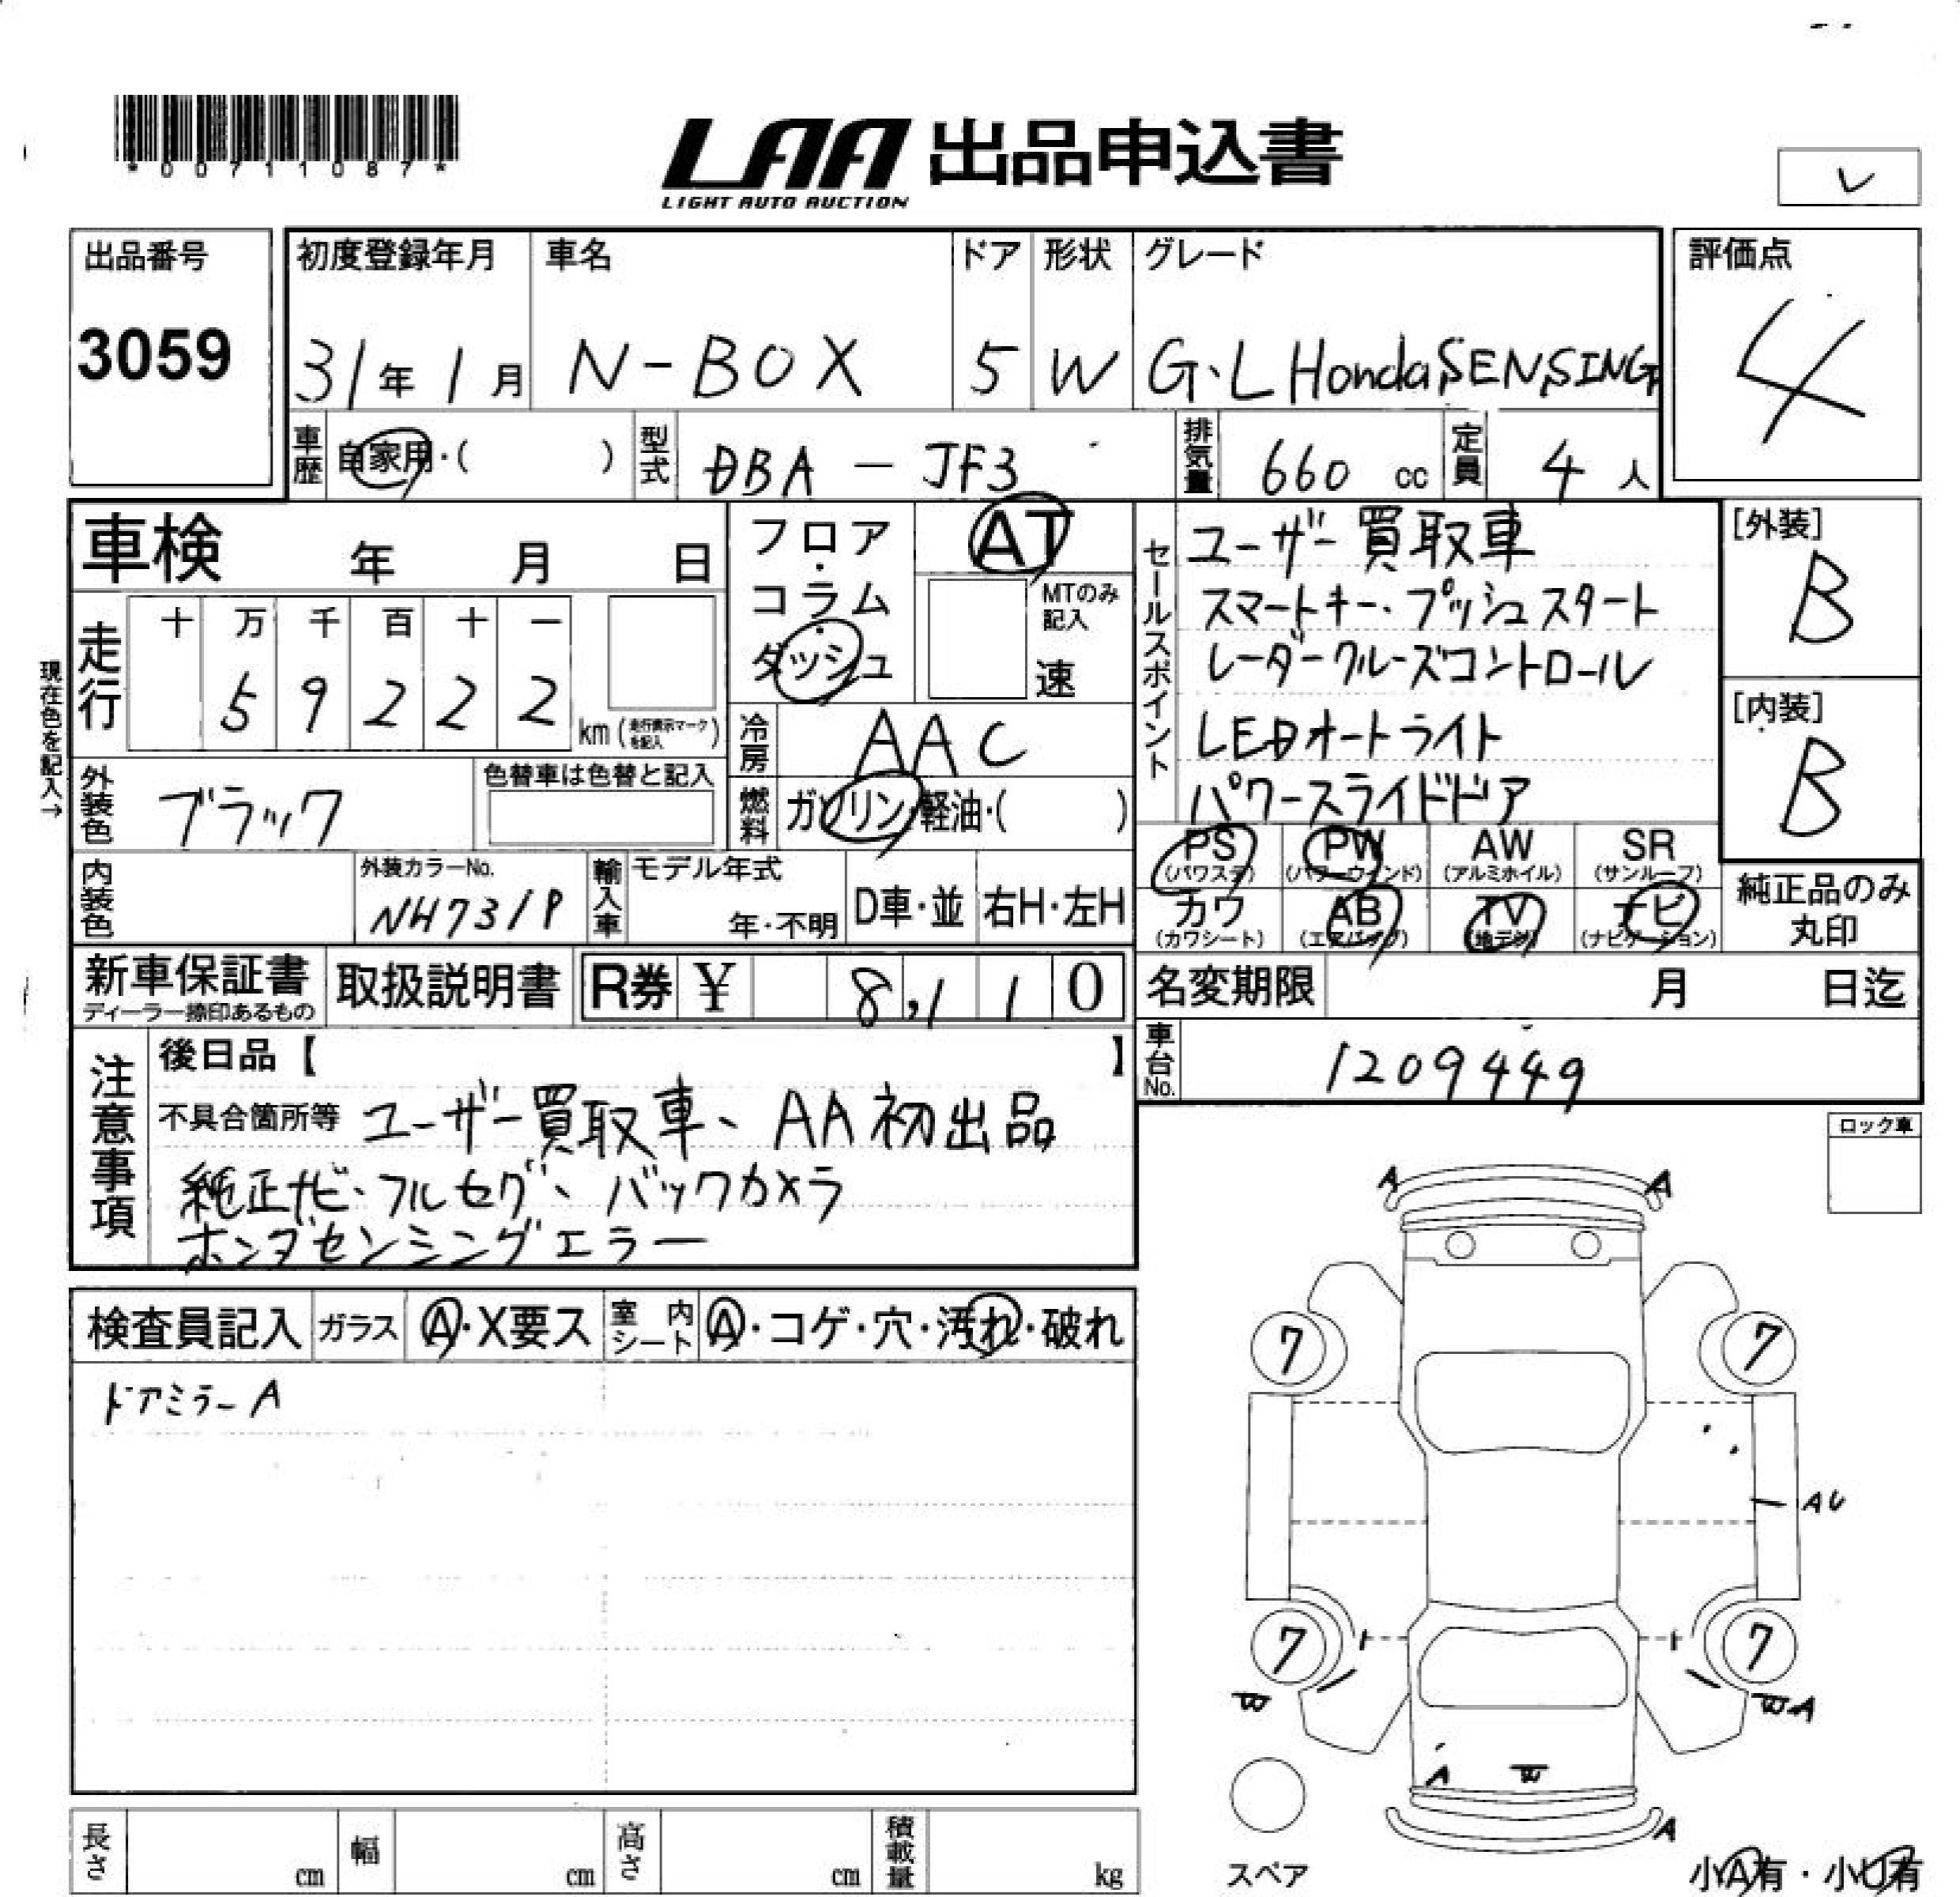 *00711087*
LAA 出品申込書
LIGHT AUTO AUCTION
レ
出品番号
3059
初度登録年月 車名 ドア 形状 グレード
31年1月 N-BOX 5 W G・L Honda SENSING
評価点
4
車歴 自家用・( ) 型式 DBA-JF3 排気量 660 cc 定員 4人
車検 年 月 日
フロア・コラム・ダッシュ
AT
MTのみ記入
速
セールスポイント
ユーザー買取車
スマートキー・プッシュスタート
レーダークルーズコントロール
LEDオートライト
パワースライドドア
[外装]
B
[内装]
B
現在色を記入→
走行 十 万 千 百 十 一
5 9 2 2 2 km (走行表示マークを記入)
冷房 AAC
外装色 ブラック 色替車は色替と記入
燃料 ガソリン・軽油・( )
内装色 外装カラーNo. NH731P
輸入車 モデル年式 年・不明 D車・並 右H・左H
PS (パワステ) PW (パワーウインド) AW (アルミホイル) SR (サンルーフ)
カワ (カワシート) AB (エアバッグ) TV (地デジ) ナビ (ナビゲーション)
純正品のみ丸印
新車保証書 ディーラー捺印あるもの 取扱説明書 R券 ¥ 8,110
名変期限 月 日迄
車台No. 1209449
注意事項
後日品【 】
不具合箇所等 ユーザー買取車、AA初出品
純正ナビ・フルセグ、バックカメラ
ホンダセンシングエラー
ロック車
検査員記入 ガラス A・X要ス 室内シート A・コゲ・穴・汚れ・破れ
ドアミラーA
A A
7 7
AU
7 7
W WA
A W
A
スペア
小A有・小U有
長さ cm 幅 cm 高さ cm 積載量 kg